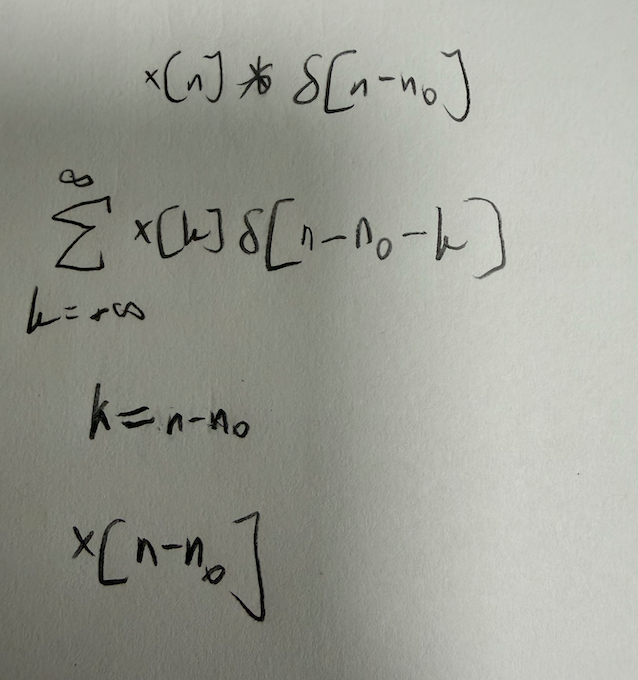 x[n] * δ[n-n₀]
∞
∑ x[k] δ[n-n₀-k]
k=+∞
k=n-n₀
x[n-n₀]